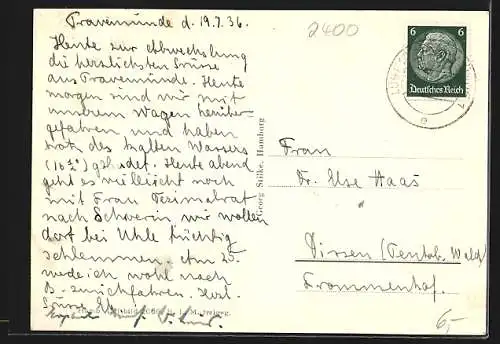 Travemünde d. 19.7.36.
2400
Heute zur Abwechslung
die herzlichsten Grüsse
aus Travemünde. Heute
morgen sind wir mit
unserem Wagen herüber-
gefahren und haben
trotz des kalten Wassers
(16½°) gebadet. Heute abend
geht es vielleicht noch
mit Frau
nach Schwerin wir wollen
dort bei Uhle tüchtig
schlemmen Am 25.
werde ich wohl nach
B. zurückfahren. Herzl.
Grüsse
6 6
Deutsches Reich
Georg Stilke, Hamburg
Frau
Dr. Ilse Haas
Dissen (Teutob. Wald)
Frommenhof.
6,-